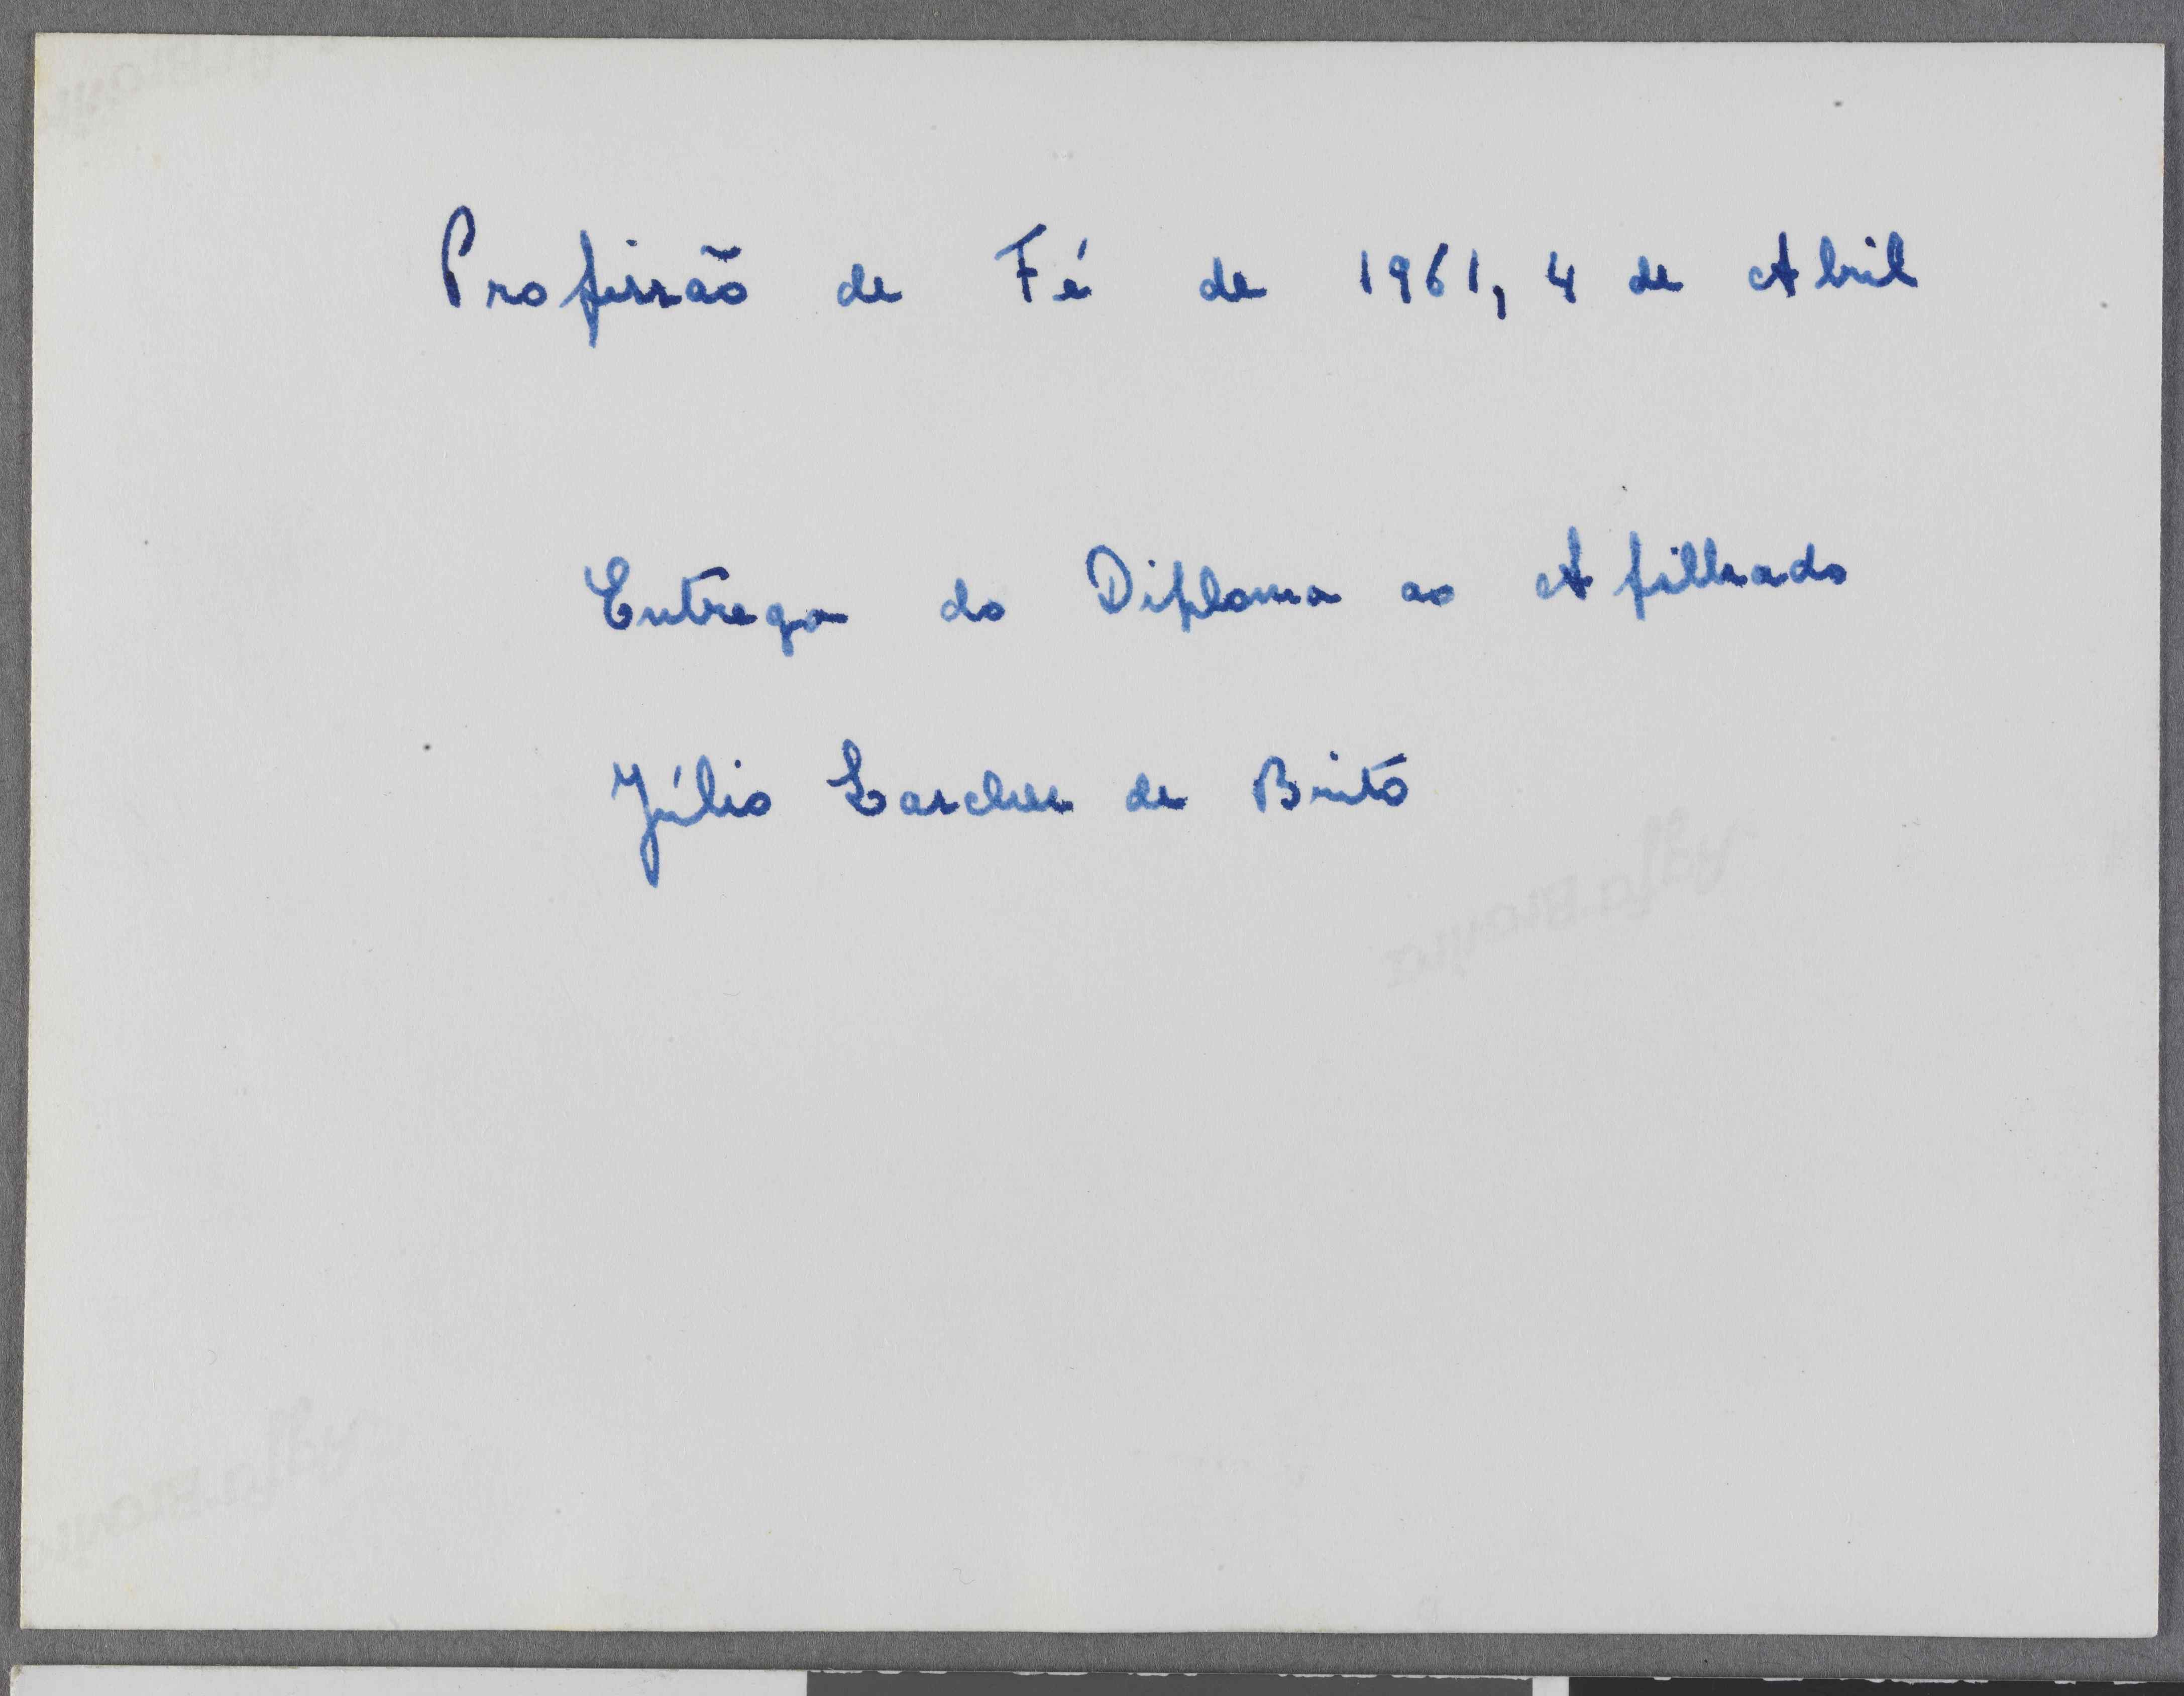 Profissão de Fé de 1961, 4 de Abril
Entrega do Diploma ao Afilhado
Júlio Larcher de Brito